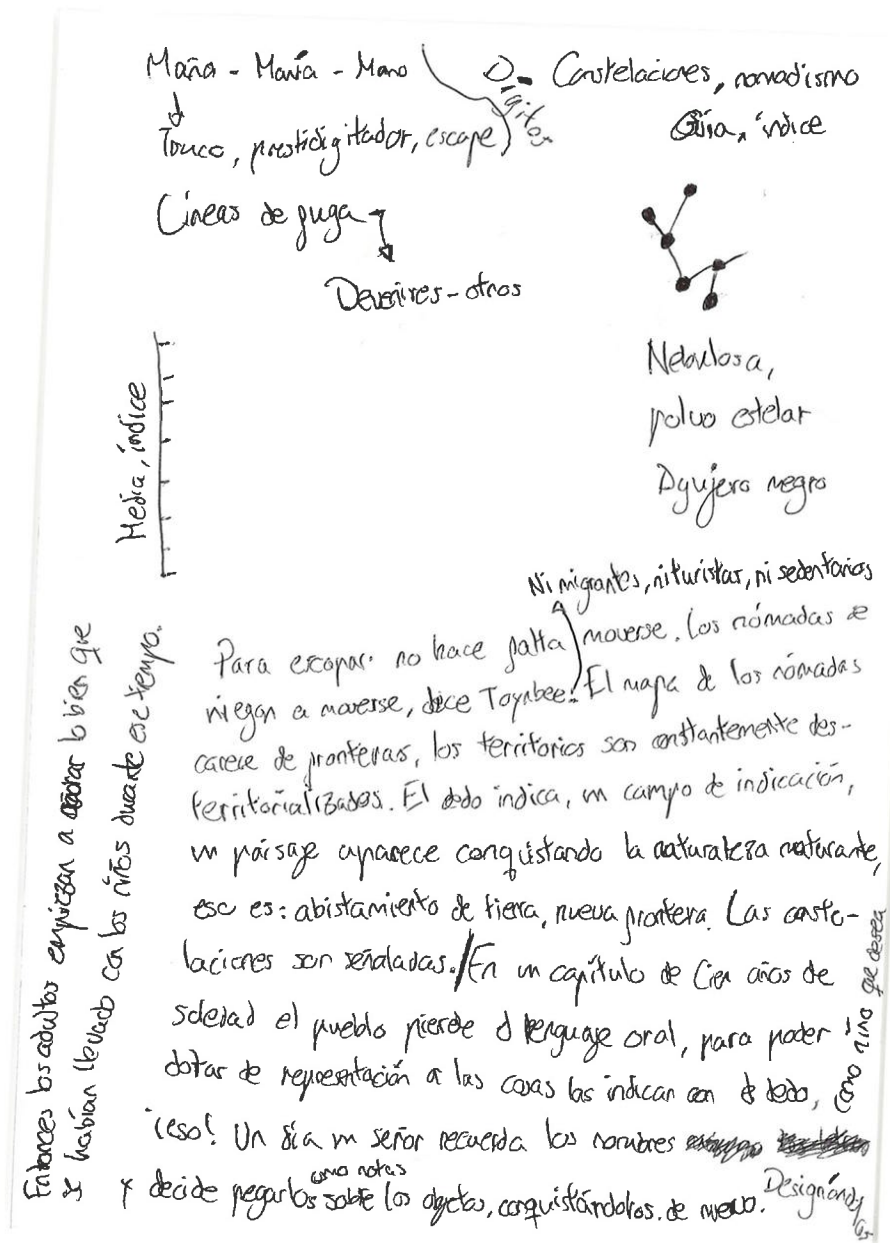 Maña - Manía - Mano
Dígitos
Constelaciones, nomadismo
Guía, índice
Truco, prestidigitador, escape
Líneas de fuga
Devenires-otros
Nebulosa,
polvo estelar
Agujero negro
Media, índice
Ni migrantes, ni turistas, ni sedentarios
Para escapar no hace falta moverse. Los nómadas se
niegan a moverse, dice Toynbee. El mapa de los nómadas
carece de fronteras, los territorios son constantemente des-
territorializados. El dedo indica, un campo de indicación,
un paisage aparece conquistando la naturaleza naturante,
eso es: abistamiento de tierra, nueva frontera. Las conste-
laciones son señaladas. / En un capítulo de Cien años de
soledad el pueblo pierde el lenguaje oral, para poder
dotar de representación a las cosas las indican con el dedo,
¡eso! Un día un señor recuerda los nombres
como notas
y decide pegarlos sobre los objetos, conquistándolos de nuevo.
Designándolos
como niño que desea
Entonces los adultos empiezan a lo bien que
se habían llevado con los niños durante ese tiempo.